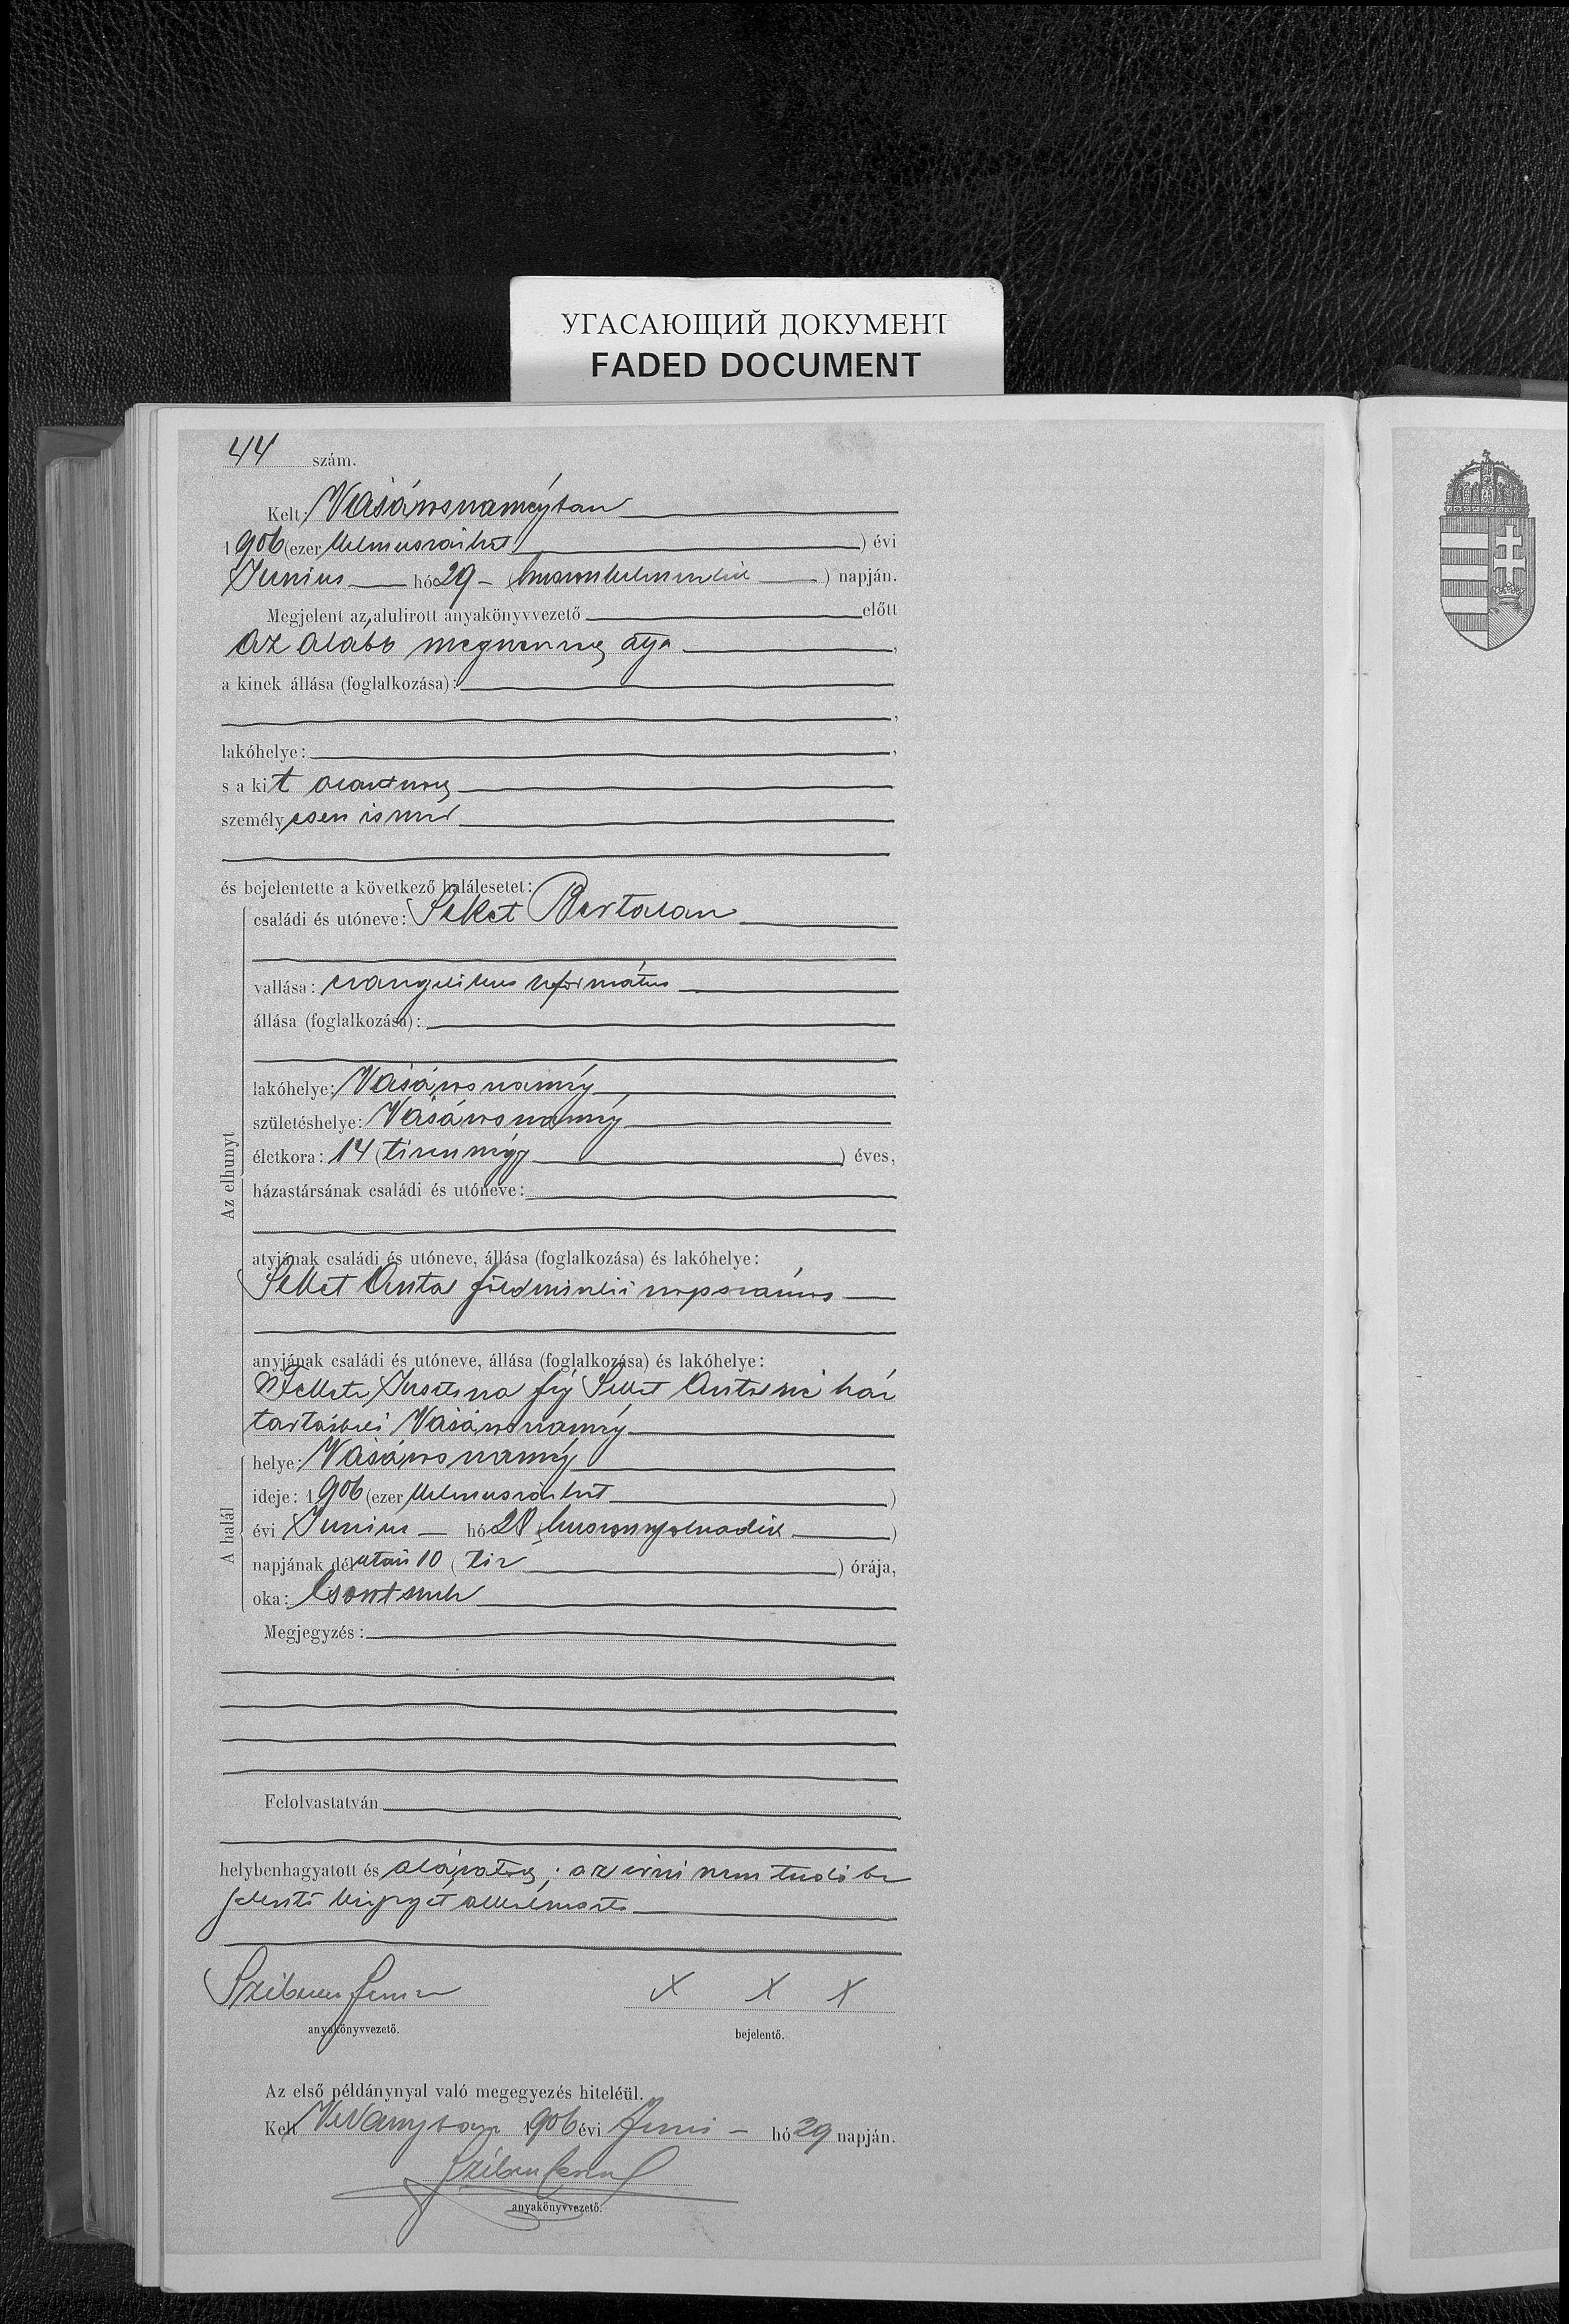 УГАСАЮЩИЙ ДОКУМЕНТ
FADED DOCUMENT
44 szám.
Kelt: Vásárosnaményban
1906 (ezer kilenczszázhat) évi
Junius hó 29 - (huszonkilenczedik) napján.
Megjelent az alulirott anyakönyvvezető előtt
az alább megnevezett atya,
a kinek állása (foglalkozása):
lakóhelye:
s a kit
személyesen ismer
és bejelentette a következő halálesetet:
családi és utóneve: Seket Bertalan
vallása: evangelikus református
állása (foglalkozása):
lakóhelye: Vásárosnamény
születéshelye: Vásárosnamény
életkora: 14 (tizennégy) éves,
házastársának családi és utóneve:
Az elhunyt
atyjának családi és utóneve, állása (foglalkozása) és lakóhelye:
Seket Antal földmivelő napszámos
anyjának családi és utóneve, állása (foglalkozása) és lakóhelye:
Fekete Jusztina Antalné ház
tartásbeli Vásárosnamény
A halál
helye: Vásárosnamény
ideje: 1906 (ezer kilenczszázhat)
évi Junius hó 28 (huszonnyolczadik)
napjának délután 10 (tiz) órája,
oka: Csontszu
Megjegyzés:
Felolvastatván
helybenhagyatott és aláiratott; az irni nem tudó be
jelentő kézjegyét alkalmazta
x x x
anyakönyvvezető.
bejelentő.
Az első példánynyal való megegyezés hiteléül.
Kelt 1906 évi Juni - hó 29 napján.
anyakönyvvezető.